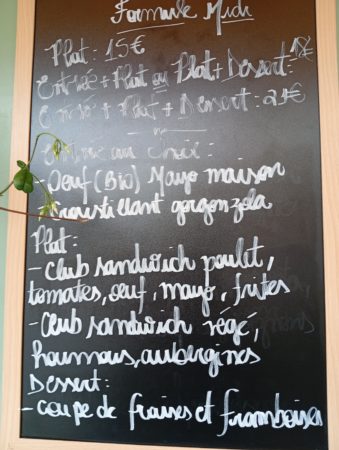 Formule Midi
Plat : 15€
Entrée + Plat ou Plat + Dessert :
Entrée + Plat + Dessert : 21€
Entrée au choix :
- Oeuf (Bio) Mayo maison
- Croustillant gorgonzola
Plat :
- Club sandwich poulet,
tomates, oeuf, mayo, frites
- Club sandwich végé,
houmous, aubergines
Dessert :
- coupe de fraises et framboises